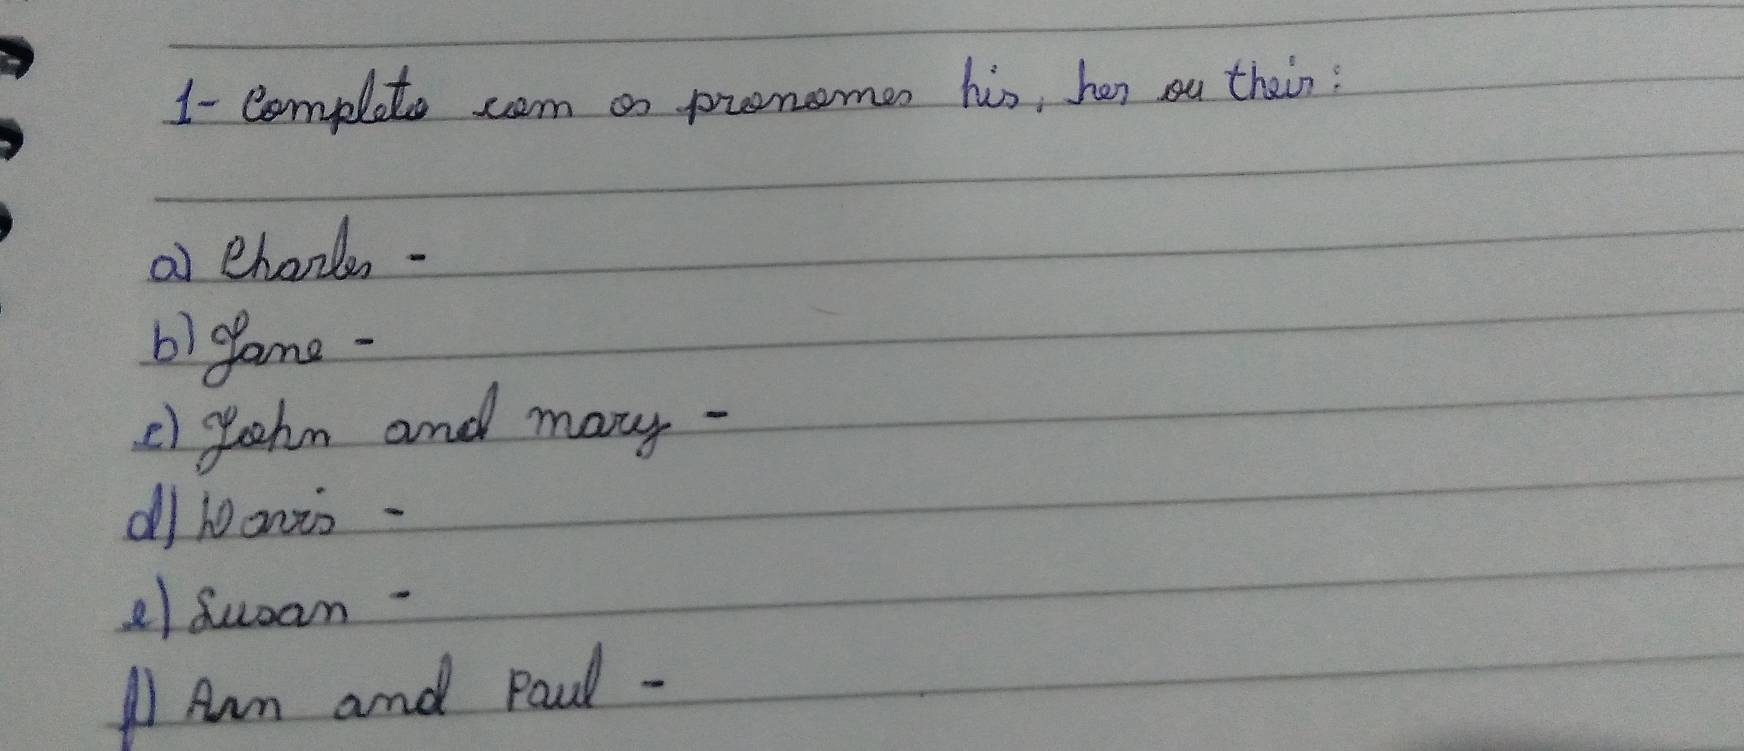 1- Complete com os pronomes his, her ou their:
a) Charles -
b) Jane -
c) John and mary -
d) Davis -
e) Susan -
f) Ann and Paul -